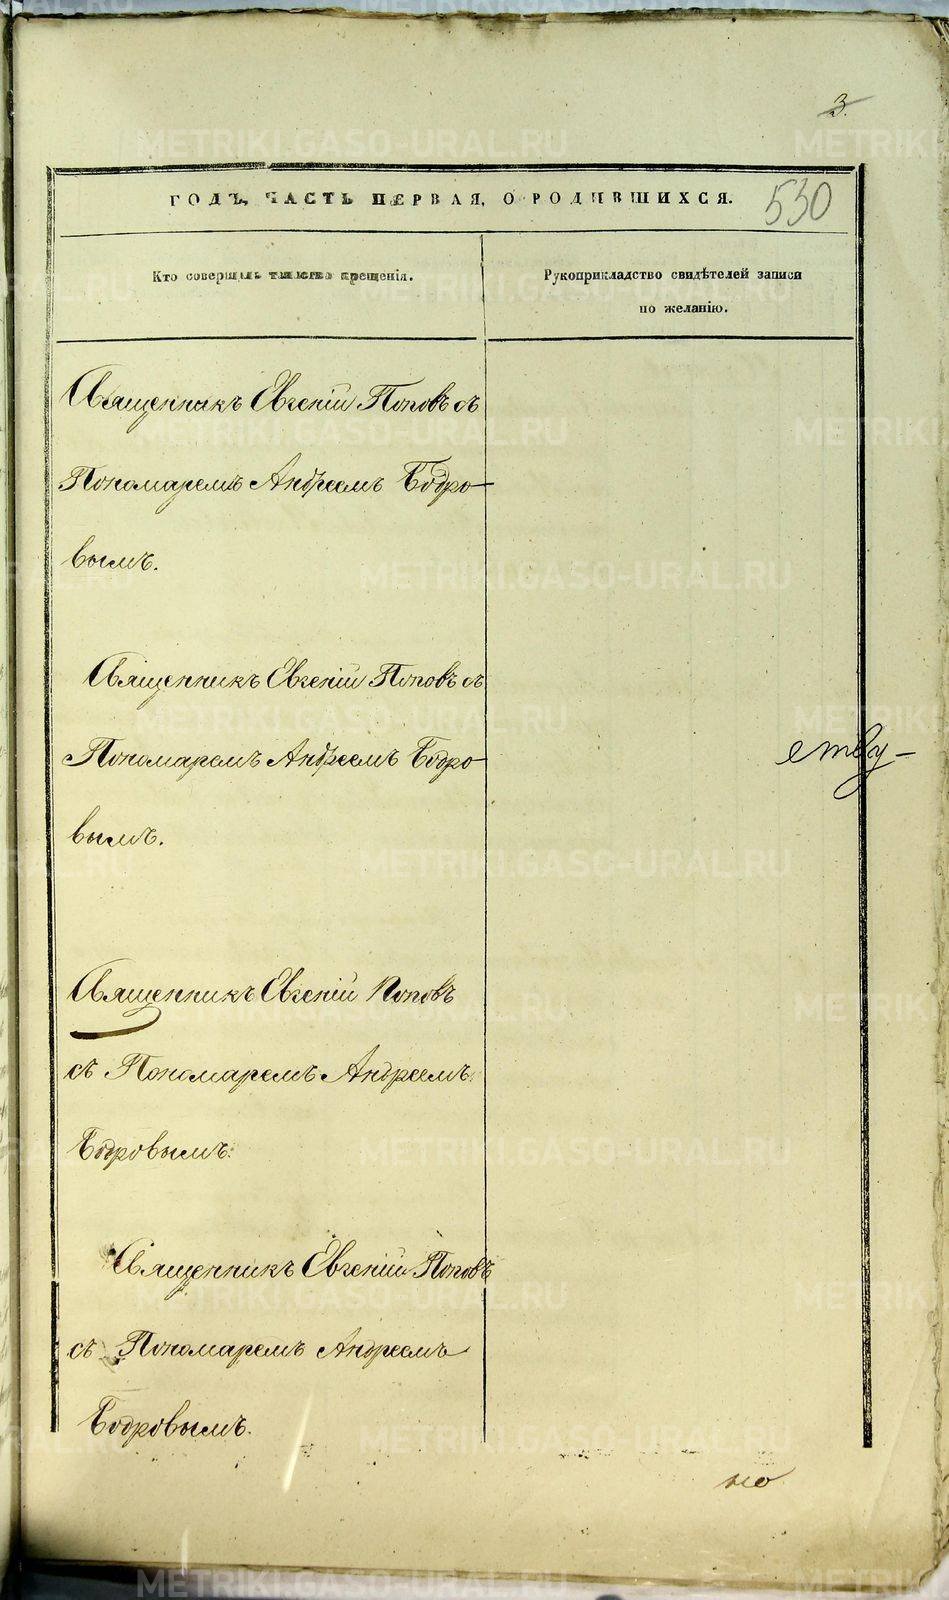 3.
ГОДЪ, ЧАСТЬ ПЕРВАЯ, О РОДИВШИХСЯ.
530
Кто совершалъ таинство крещенія.
Рукоприкладство свидѣтелей записи
по желанію.
Священникъ Евгеній Поповъ съ
Пономаремъ Андреемъ Бодро-
вымъ.
Священникъ Евгеній Поповъ съ
Пономаремъ Андреемъ Бодро-
вымъ.
Священникъ Евгеній Поповъ
съ Пономаремъ Андреемъ
Бодровымъ.
Священникъ Евгеній Поповъ
съ Пономаремъ Андреемъ
Бодровымъ.
ству-
METRIKI.GASO-URAL.RU